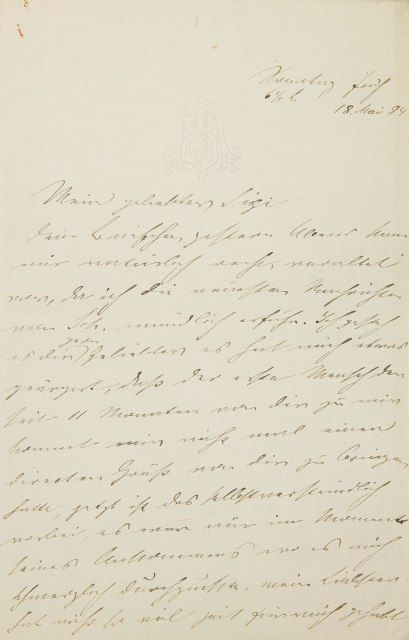 Sonntag früh
6 ½ h.
18. Mai 84
Mein geliebter Sigi
Dein Briefchen gestern Abend kam
mir natürlich recht veraltet
vor, da ich die neuesten Nachrichten
von Sch. mündlich erfuhr. Ich
es Dir gern Geliebter, es hat mich etwas
geärgert, daß der erste Mensch der
seit 11 Monaten von Dir zu mir
kommt mir nicht mal einen
directen Gruß von Dir zu bringen
hatte, jetzt ist das selbstverständlich
vorbei, es war nur im Momente
seines Ankommens wo es mich
schmerzlich durchzuckte, mein Liebster
hat nicht so viel Zeit für mich gehabt